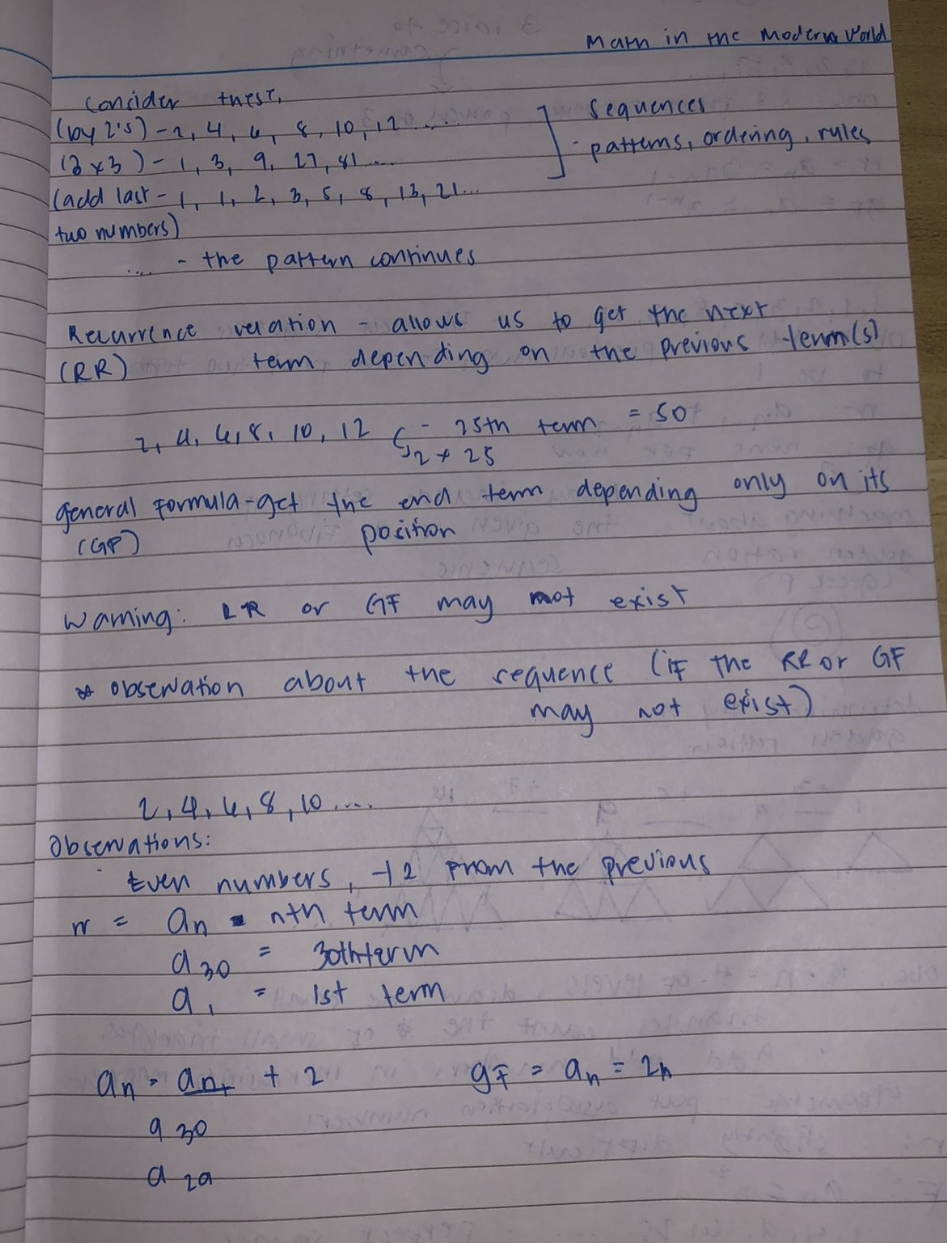 Math in the Modern World
Consider these,
(by 2's) - 2, 4, 6, 8, 10, 12 ..... sequences
(3 x 3) - 1, 3, 9, 27, 81 .... - patterns, ordering, rules
(add last - 1, 1, 2, 3, 5, 8, 13, 21...
two numbers)
.... - the pattern continues
Recurrence relation - allows us to get the next
(RR) term depending on the previous term(s)
2, 4, 6, 8, 10, 12 - 25th term = 50
2 x 25
general formula - get the end term depending only on its
(GF) position
Warning: RR or GF may not exist
* observation about the sequence (if the RR or GF
may not exist)
2, 4, 6, 8, 10 ....
Observations:
Even numbers, +2 from the previous
rr = an = nth term
a30 = 30th term
a1 = 1st term
an = an-1 + 2 gf = an = 2n
a30
a29